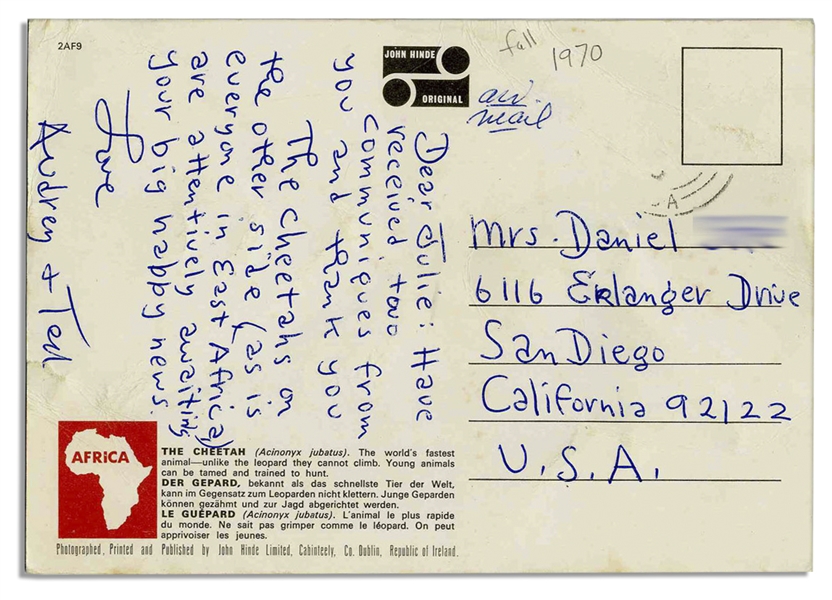 2AF9
JOHN HINDE
ORIGINAL
fall 1970
air
mail
Dear Julie: Have
received two
communiques from
you and thank you
The cheetahs on
the other side (as is
everyone in East Africa)
are attentively awaiting
your big happy news.
Love
Audrey + Ted
A
Mrs. Daniel
6116 Erlanger Drive
San Diego
California 92122
U.S.A.
AFRiCA
THE CHEETAH (Acinonyx jubatus). The world's fastest
animal—unlike the leopard they cannot climb. Young animals
can be tamed and trained to hunt.
DER GEPARD, bekannt als das schnellste Tier der Welt,
kann im Gegensatz zum Leoparden nicht klettern. Junge Geparden
können gezähmt und zur Jagd abgerichtet werden.
LE GUÉPARD (Acinonyx jubatus). L'animal le plus rapide
du monde. Ne sait pas grimper comme le léopard. On peut
apprivoiser les jeunes.
Photographed, Printed and Published by John Hinde Limited, Cabinteely, Co. Dublin, Republic of Ireland.